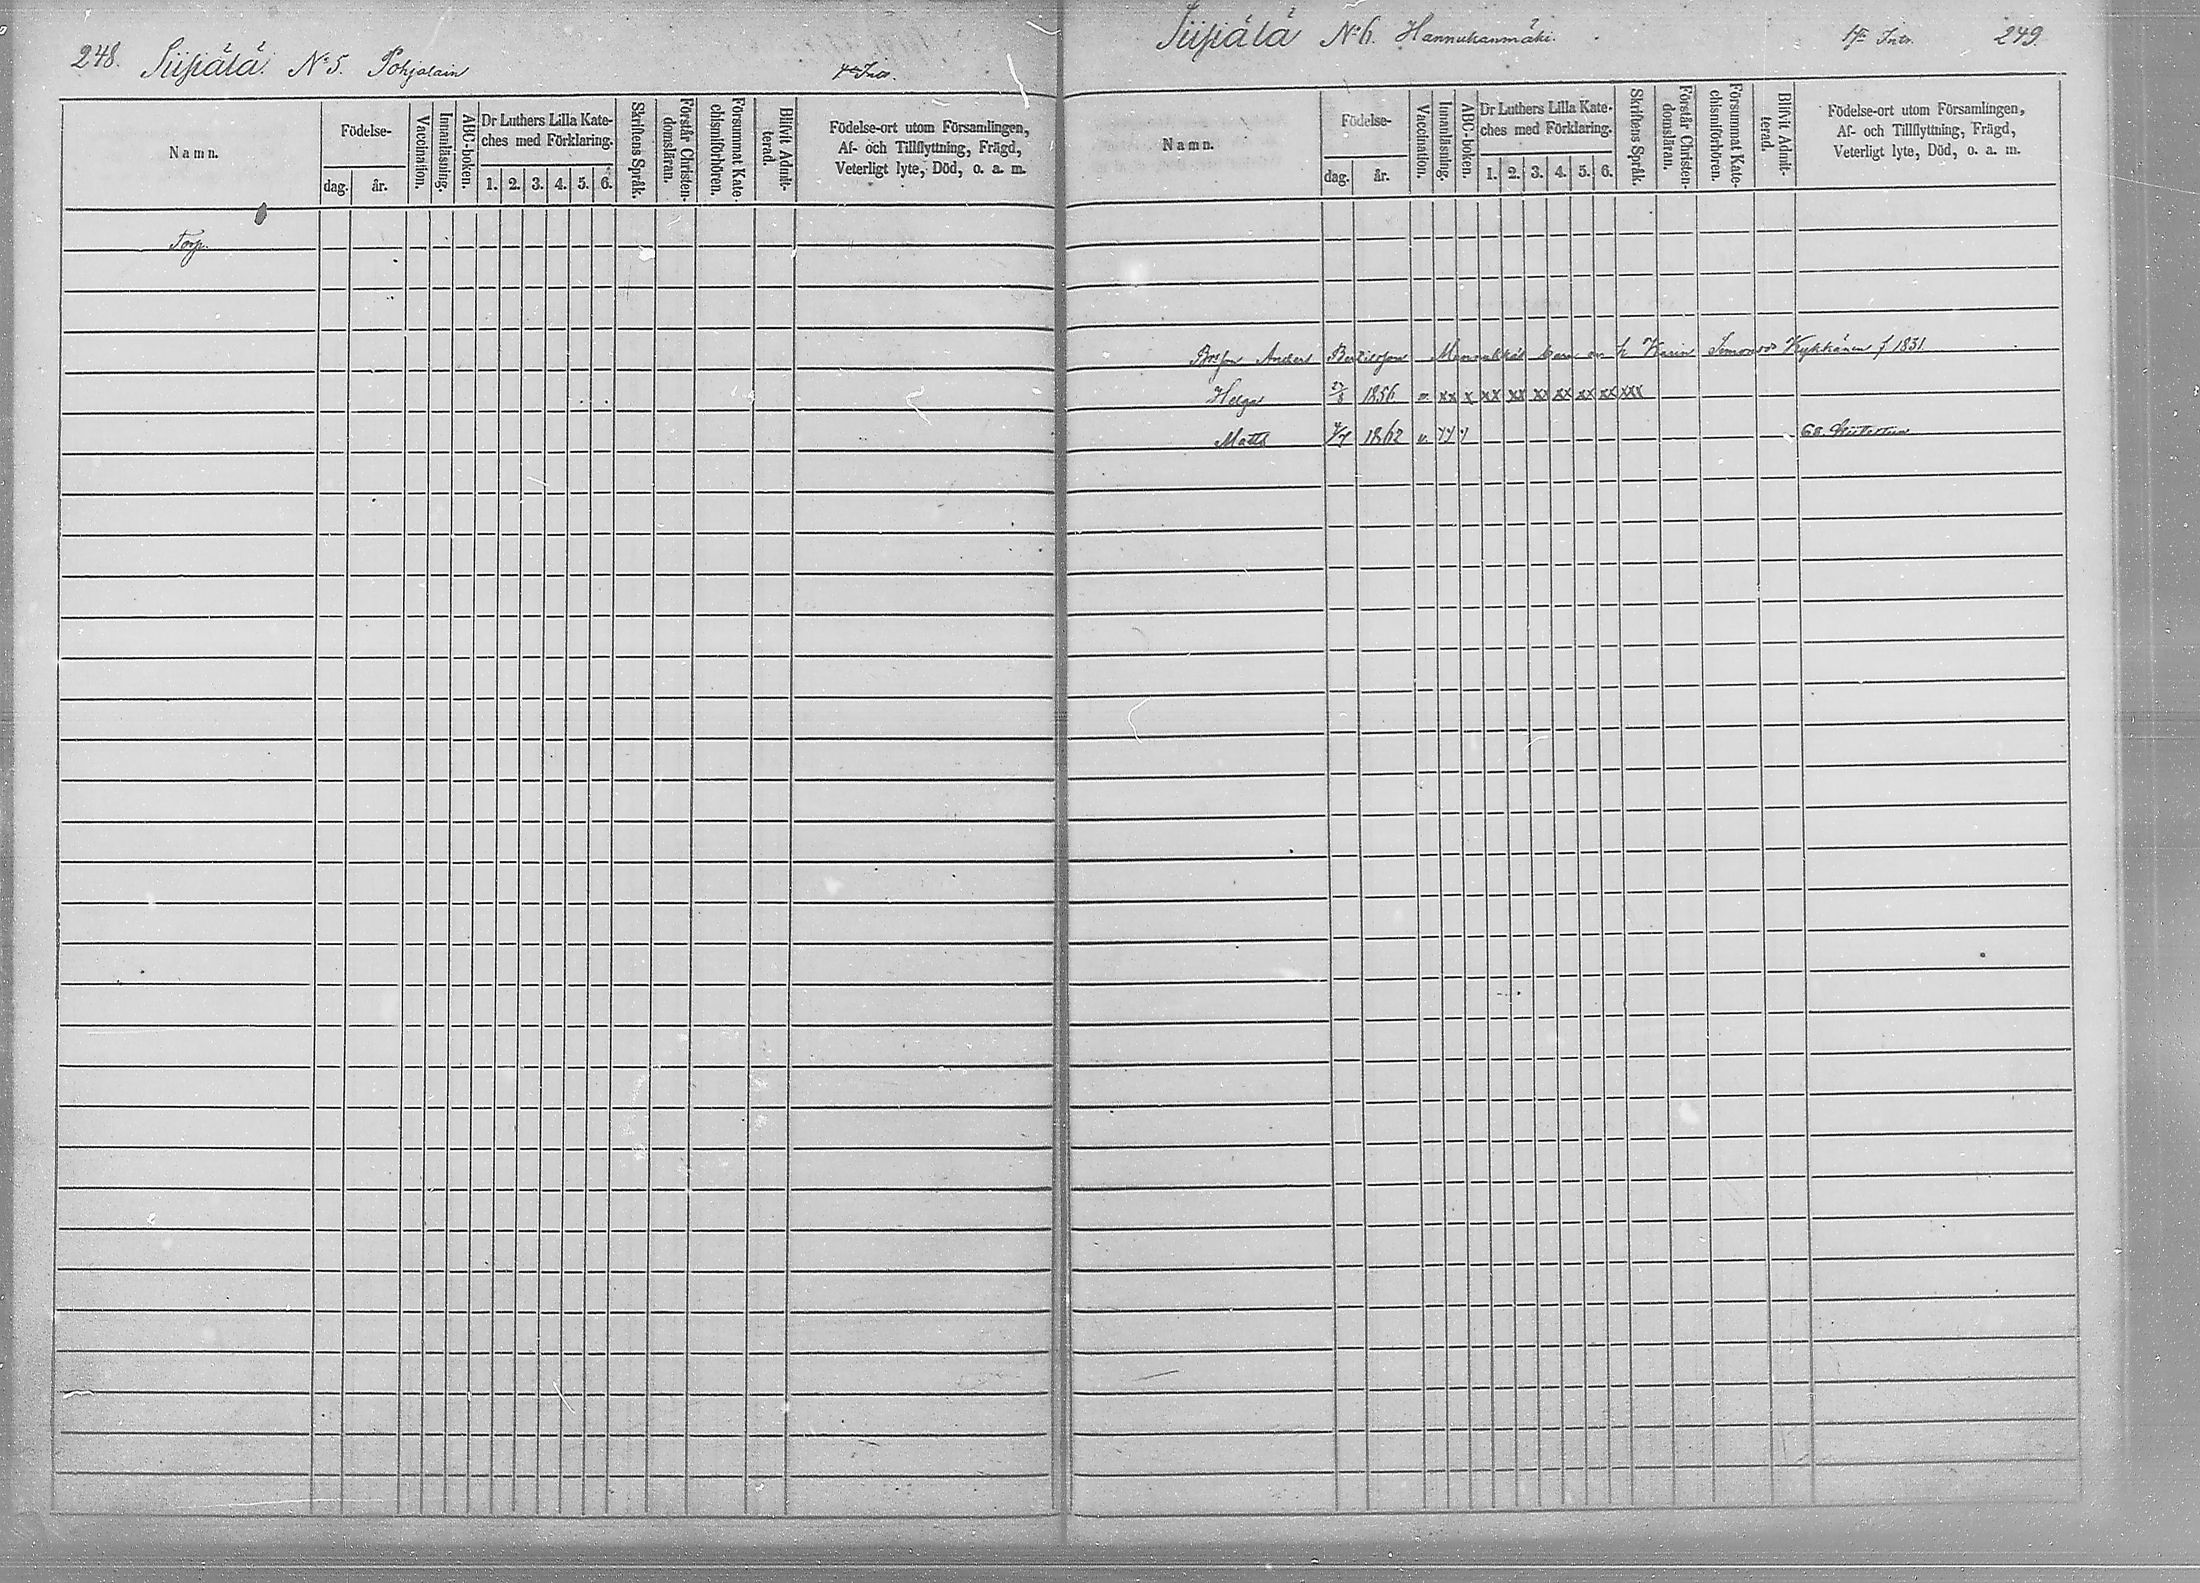 248. Siipälä. No 5. Pohjalain
Namn.
Födelse-
dag. år.
Vaccination.
Innanläsning.
ABC-boken.
Dr Luthers Lilla Kate-
ches med Förklaring.
1. 2. 3. 4. 5. 6.
Skriftens Språk.
Förstår Christen-
domsläran.
Försummat Kate-
chismiförhören.
Blifvit Admit-
terad.
Födelse-ort utom Församlingen,
Af- och Tillflyttning, Frägd,
Veterligt lyte, Död, o. a. m.
Torp.
Siipälä No 6. Hannukanmäki. 249.
Namn.
Födelse-
dag. år.
Vaccination.
Innanläsning.
ABC-boken.
Dr Luthers Lilla Kate-
ches med Förklaring.
1. 2. 3. 4. 5. 6.
Skriftens Språk.
Förstår Christen-
domsläran.
Försummat Kate-
chismiförhören.
Blifvit Admit-
terad.
Födelse-ort utom Församlingen,
Af- och Tillflyttning, Frägd,
Veterligt lyte, Död, o. a. m.
Anders Bertilsson barn Karin Simonsdr Kykkänen f 1831
Helga 1856 v. xx x xx xx xx xx xx xx xxx
Matts 1862 v.